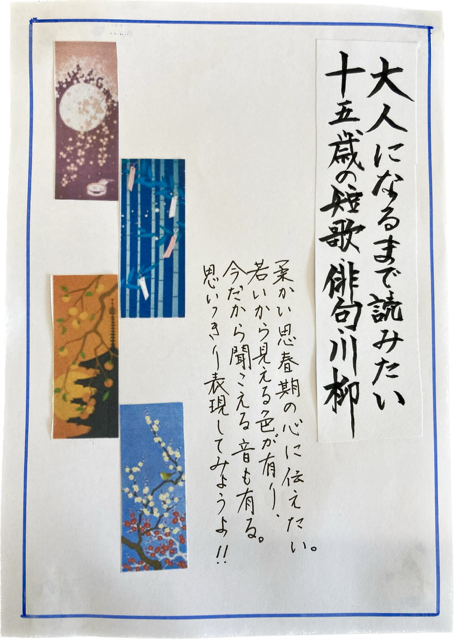 大人になるまで読みたい
十五歳の短歌・俳句・川柳
柔かい思春期の心に伝えたい。
若いから見える色が有り、
今だから聞こえる音も有る。
思いっきり表現してみようよ!!